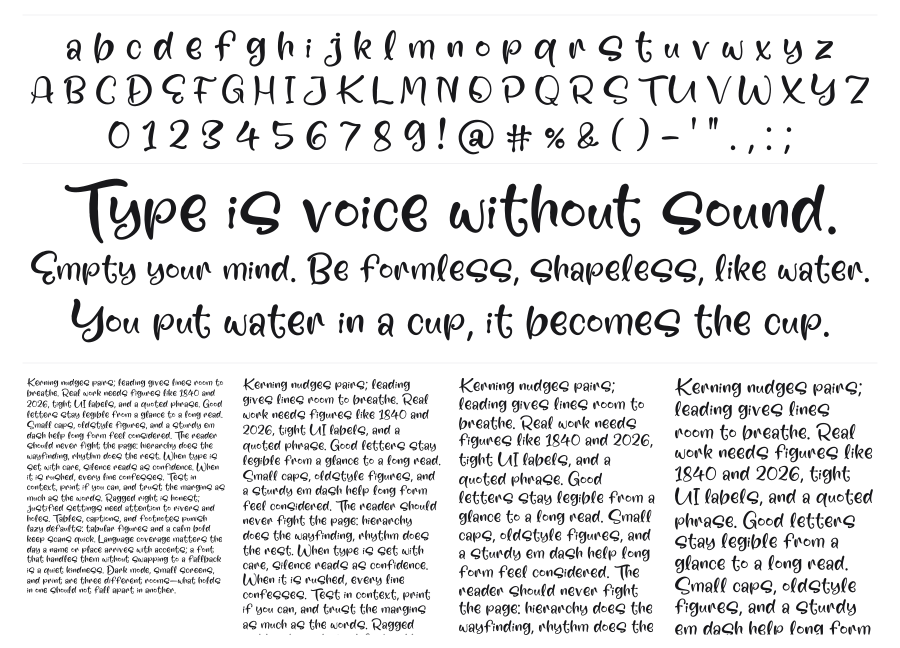 a b c d e f g h i j k l m n o p q r s t u v w x y z
A B C D E F G H I J K L M N O P Q R S T U V W X Y Z
0 1 2 3 4 5 6 7 8 9 ! @ # % & ( ) - ' " . , : ;
Type is voice without sound.
Empty your mind. Be formless, shapeless, like water.
You put water in a cup, it becomes the cup.
Kerning nudges pairs; leading gives lines room to
breathe. Real work needs figures like 1840 and
2026, tight UI labels, and a quoted phrase. Good
letters stay legible from a glance to a long read.
Small caps, oldstyle figures, and a sturdy em
dash help long form feel considered. The reader
should never fight the page: hierarchy does the
wayfinding, rhythm does the rest. When type is
set with care, silence reads as confidence. When
it is rushed, every line confesses. Test in
context, print if you can, and trust the margins as
much as the words. Ragged right is honest;
justified settings need attention to rivers and
holes. Tables, captions, and footnotes punish
lazy defaults: tabular figures and a calm bold
keep scans quick. Language coverage matters the
day a name or place arrives with accents; a font
that handles them without swapping to a fallback
is a quiet kindness. Dark mode, small screens,
and print are three different rooms—what holds
in one should not fall apart in another.
Kerning nudges pairs; leading
gives lines room to breathe. Real
work needs figures like 1840 and
2026, tight UI labels, and a
quoted phrase. Good letters stay
legible from a glance to a long read.
Small caps, oldstyle figures, and
a sturdy em dash help long form
feel considered. The reader should
never fight the page: hierarchy
does the wayfinding, rhythm does
the rest. When type is set with
care, silence reads as confidence.
When it is rushed, every line
confesses. Test in context, print
if you can, and trust the margins
as much as the words. Ragged
Kerning nudges pairs;
leading gives lines room to
breathe. Real work needs
figures like 1840 and 2026,
tight UI labels, and a
quoted phrase. Good
letters stay legible from a
glance to a long read. Small
caps, oldstyle figures, and
a sturdy em dash help long
form feel considered. The
reader should never fight
the page: hierarchy does the
wayfinding, rhythm does the
Kerning nudges pairs;
leading gives lines
room to breathe. Real
work needs figures like
1840 and 2026, tight
UI labels, and a quoted
phrase. Good letters
stay legible from a
glance to a long read.
Small caps, oldstyle
figures, and a sturdy
em dash help long form